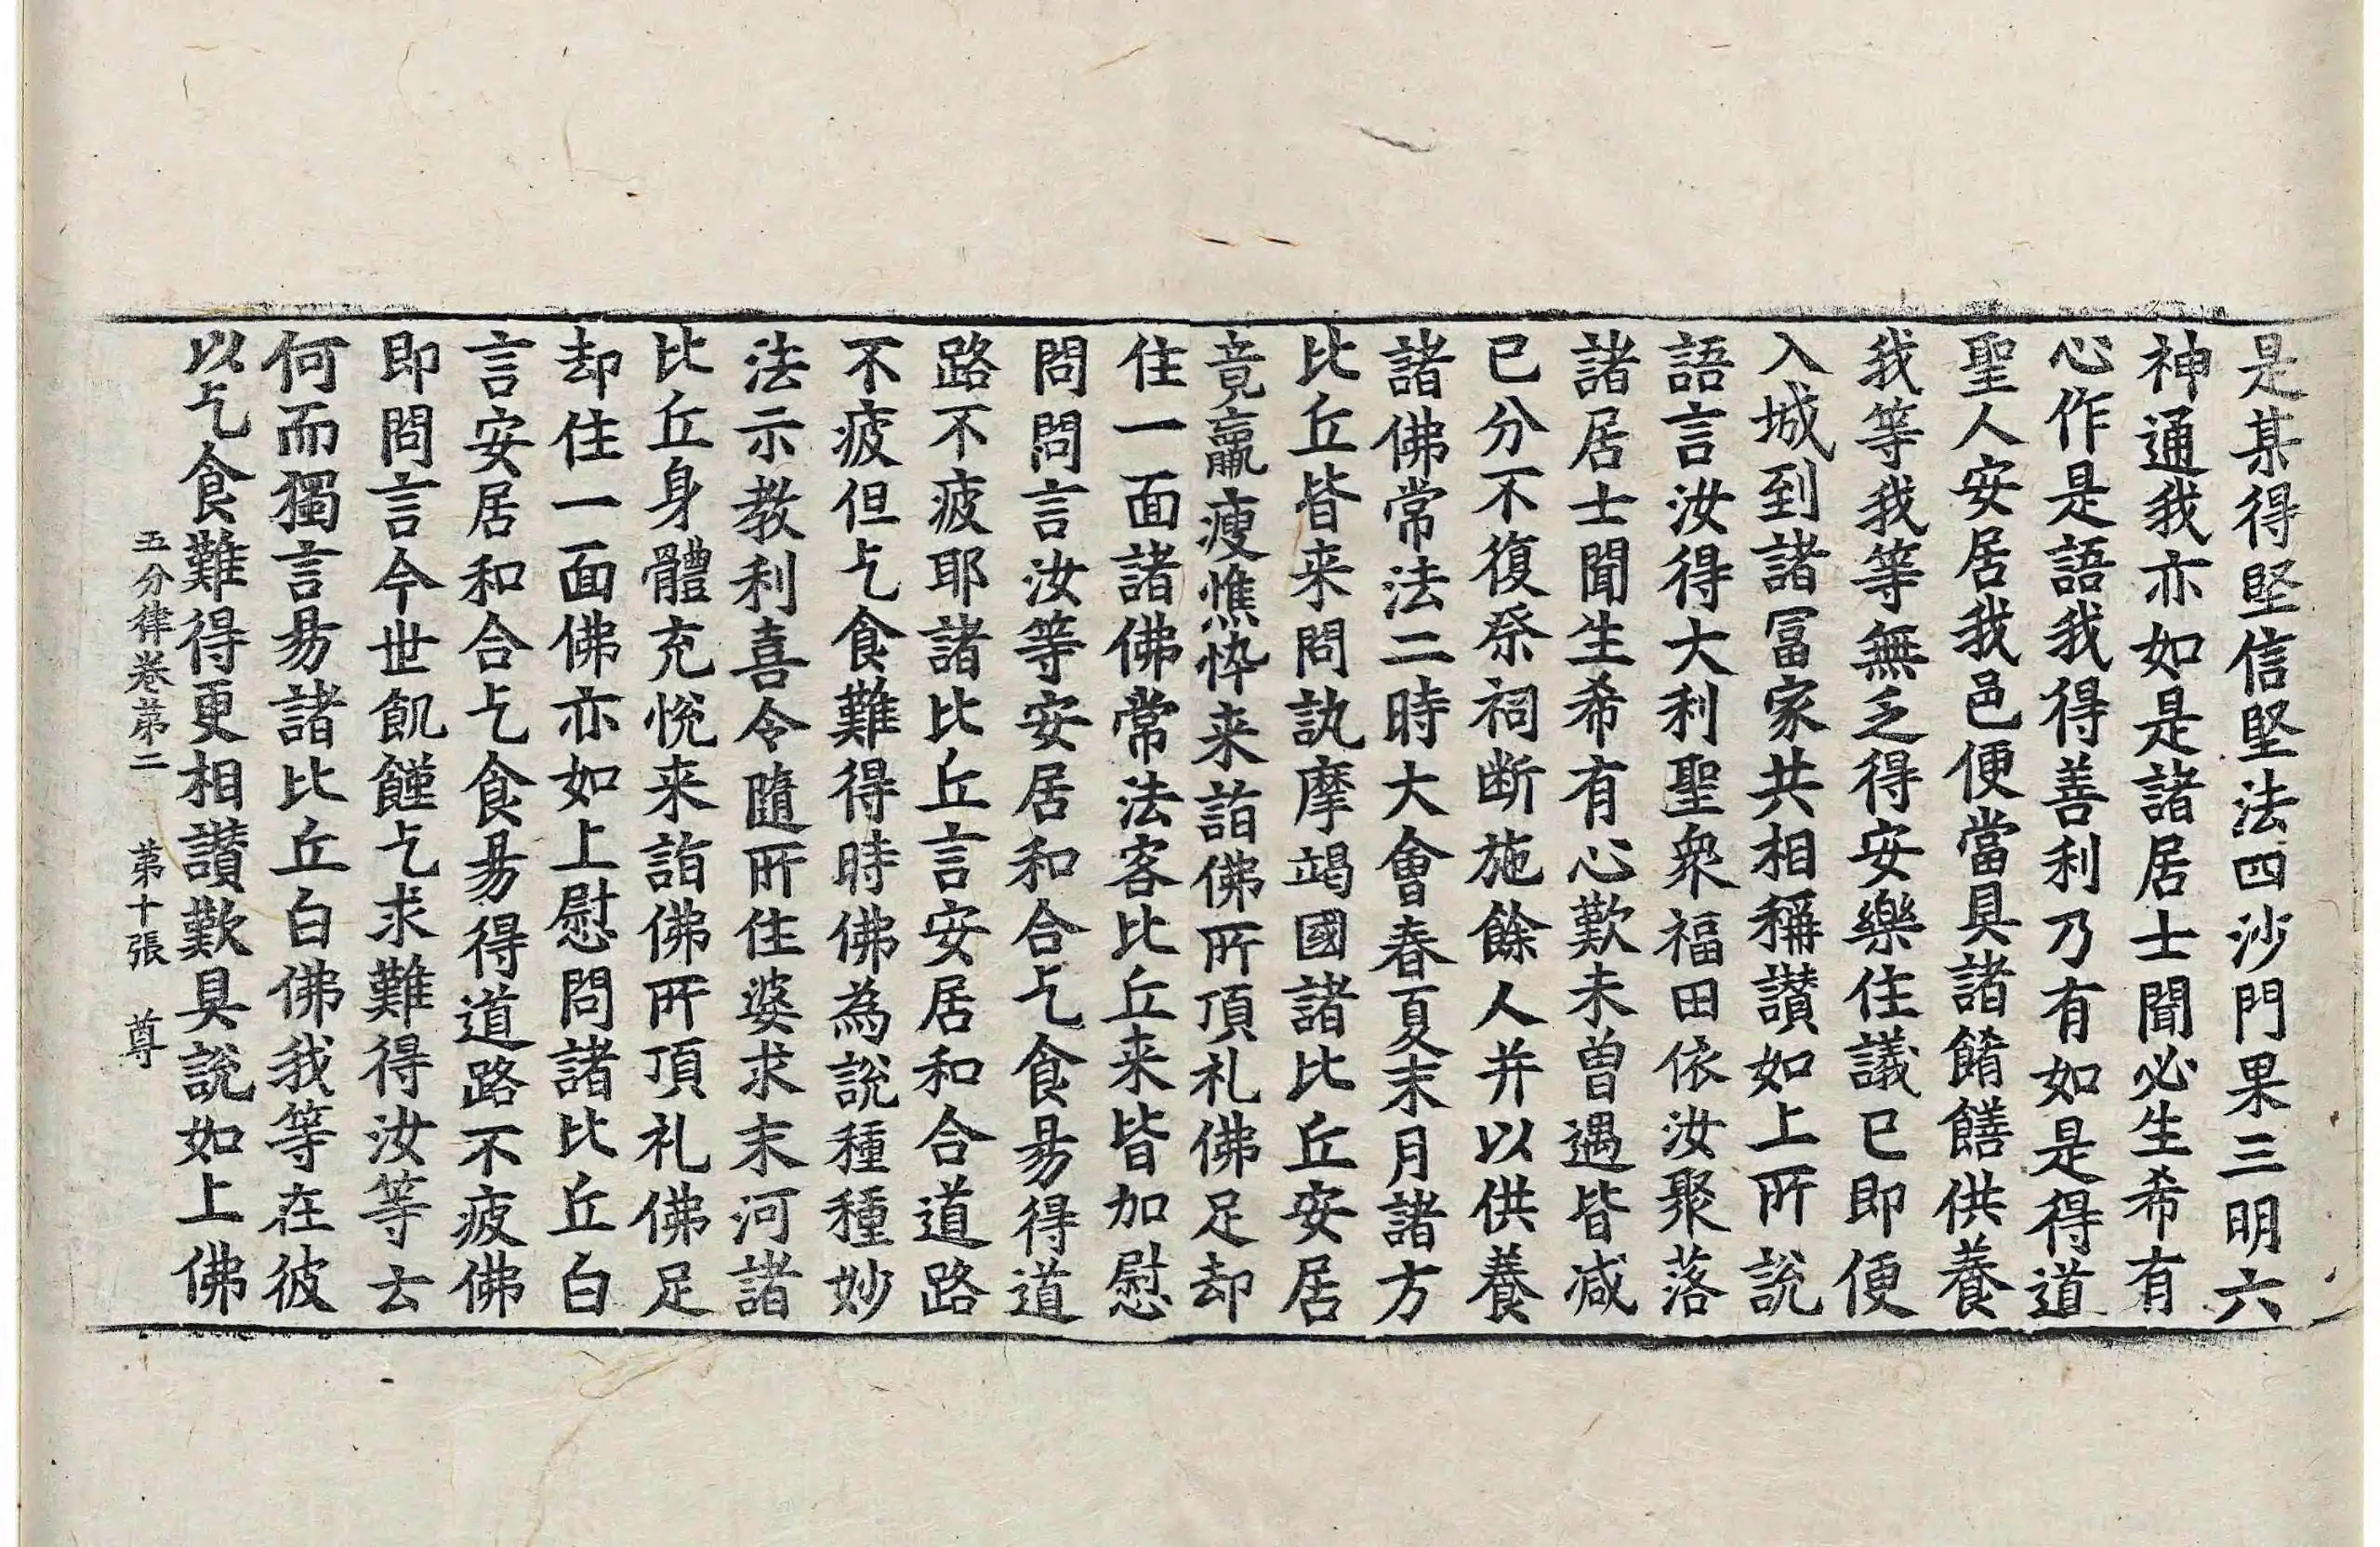 是某得堅信堅法四沙門果三明六
神通我亦如是諸居士聞必生希有
心作是語我得善利乃有如是得道
聖人安居我邑便當具諸餚饍供養
我等我等無乏得安樂住議已即便
入城到諸冨家共相稱讃如上所說
語言汝得大利聖衆福田依汝聚落
諸居士聞生希有心歎未曽遇皆减
已分不復祭祠断施餘人并以供養
諸佛常法二時大會春夏末月諸方
比丘皆来問訊摩竭國諸比丘安居
竟羸瘦憔悴来詣佛所頂礼佛足却
住一面諸佛常法客比丘来皆加慰
問問言汝等安居和合乞食昜得道
路不疲耶諸比丘言安居和合道路
不疲但乞食難得時佛為說種種妙
法示教利喜令隨所住婆求末河諸
比丘身體充悅来詣佛所頂礼佛足
却住一面佛亦如上慰問諸比丘白
言安居和合乞食昜得道路不疲佛
即問言今世飢饉乞求難得汝等云
何而獨言昜諸比丘白佛我等在彼
以乞食難得更相讃歎具說如上佛
五分律卷第二 第十張 尊